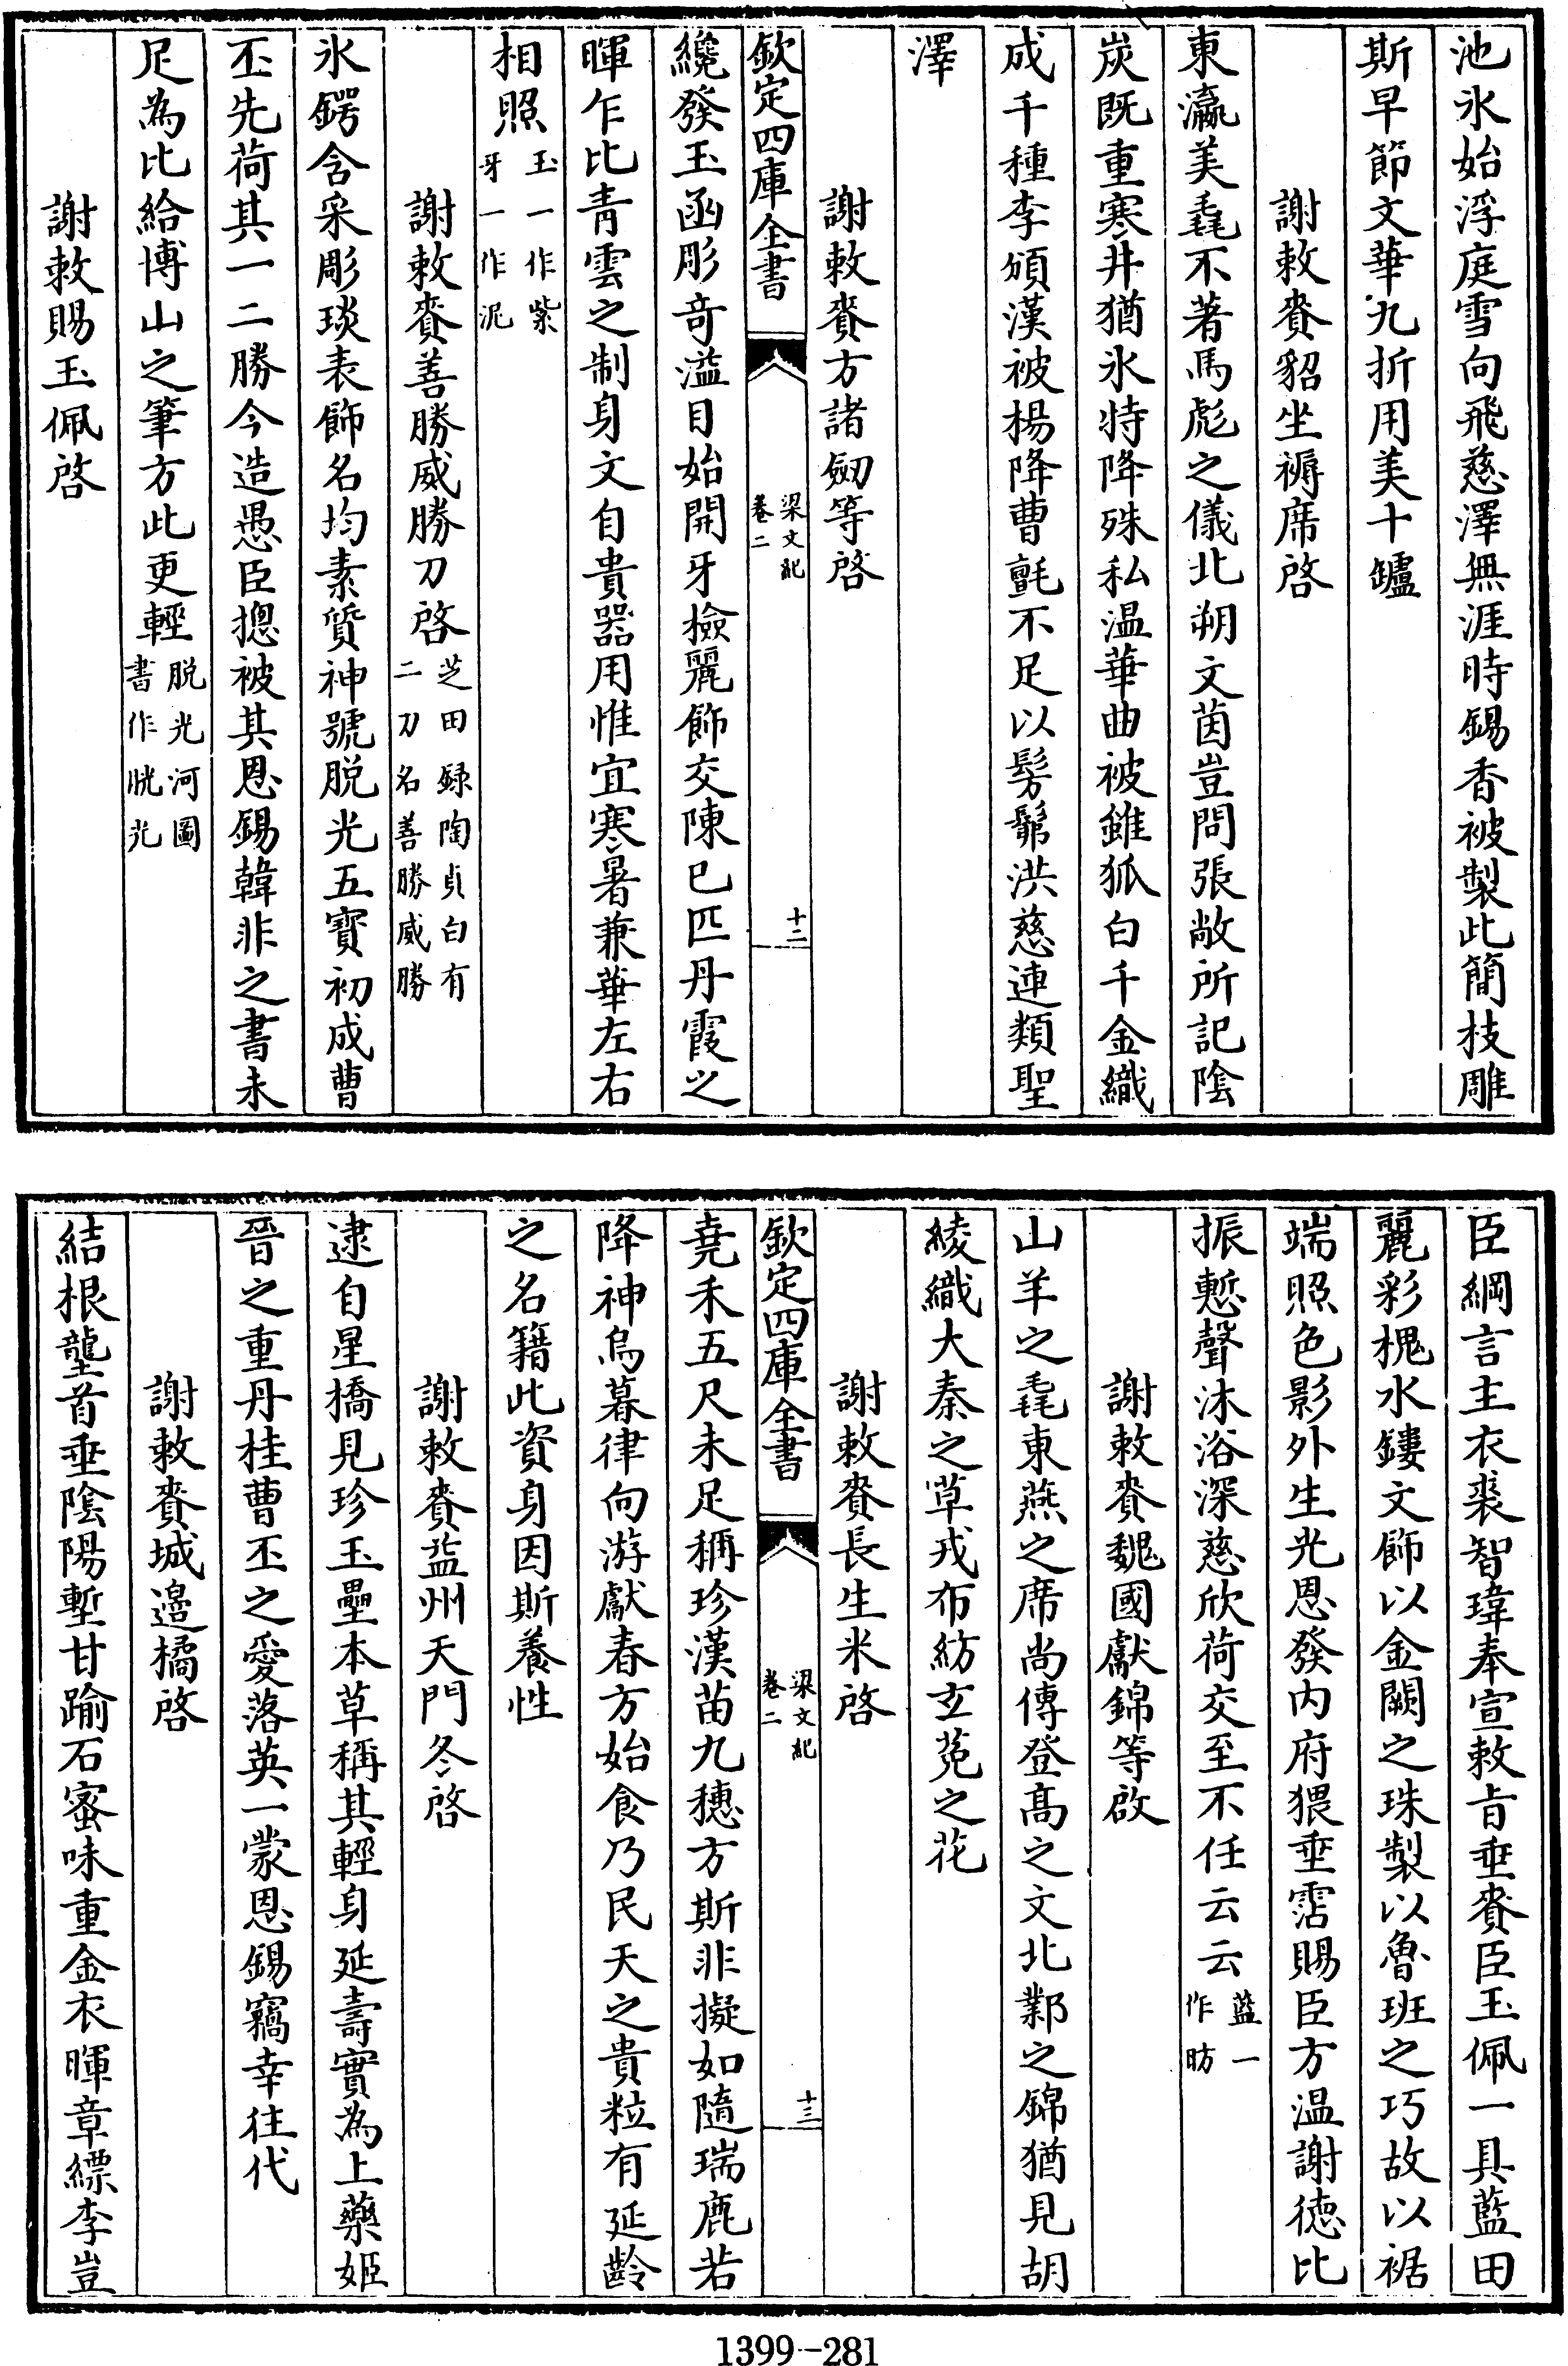 池氷始浮庭雪向飛慈澤無涯時錫香被製此簡枝雕
斯早節文華九折用美十鑪
謝敕賚貂坐褥席啓
東瀛美毳不著馬彪之儀北朔文茵豈問張敞所記陰
炭既重寒井猶氷特降殊私温華曲被雖狐白千金織
成千種李頒漢被楊降曹氈不足以髣髴洪慈連類聖
澤
謝敕賚方諸劒等啓
欽定四庫全書
梁文紀
卷二
十二
纔發玉函彫奇溢目始開牙檢麗飾交陳已匹丹霞之
暉乍比青雲之制身文自貴器用惟宜寒暑兼華左右
相照玉一作紫
牙一作泥
謝敕賚善勝威勝刀啓芝田録陶貞白有
二刀名善勝威勝
氷鍔含采彫琰表飾名均素質神號脱光五寳初成曹
丕先荷其一二勝今造愚臣揔被其恩錫韓非之書未
足為比給博山之筆方此更輕脱光河圖
書作恍光
謝敕賜玉佩啓
臣綱言主衣裘智瑋奉宣敕旨垂賚臣玉佩一具藍田
麗彩槐水鏤文飾以金闕之珠製以魯班之巧故以裾
端照色影外生光恩發内府猥垂霑賜臣方温謝徳比
振慙聲沐浴深慈欣荷交至不任云云藍一
作昉
謝敕賚魏國獻錦等啟
山羊之毳東燕之席尚傳登高之文北鄴之錦猶見胡
綾織大秦之草戎布紡玄菟之花
謝敕賚長生米啓
欽定四庫全書
梁文紀
卷二
十三
堯禾五尺未足稱珍漢苗九穗方斯非擬如隨瑞鹿若
降神烏暮律向游獻春方始食乃民天之貴粒有延齡
之名籍此資身因斯養性
謝敕賚益州天門冬啓
逮自星橋見珍玉壘本草稱其輕身延壽實為上藥姬
晉之重丹桂曹丕之愛落英一蒙恩錫竊幸往代
謝敕賚城邉橘啓
結根壟首垂陰陽塹甘踰石蜜味重金衣暉章縹李豈
1399-281